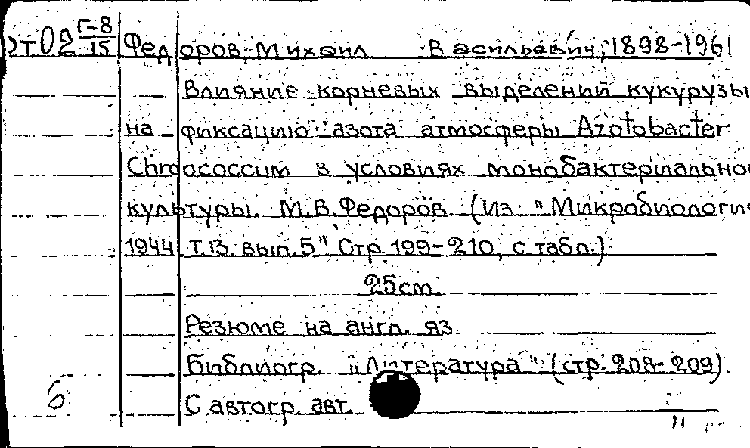 От02 Г-8/15 Федоров, Михаил Васильевич, 1898-1961
Влияние корневых выделений кукурузы
на фиксацию азота атмосферы Azotobacter
Chroococcum в условиях монобактериально
культуры. М.В.Федоров. (Из "Микробиология
1944 Т.13. вып.5" Стр 199-210, с табл.)
25cm.
Резюме на англ. яз
Библиогр. "Литература" (стр. 208-209)
б С автогр. авт.